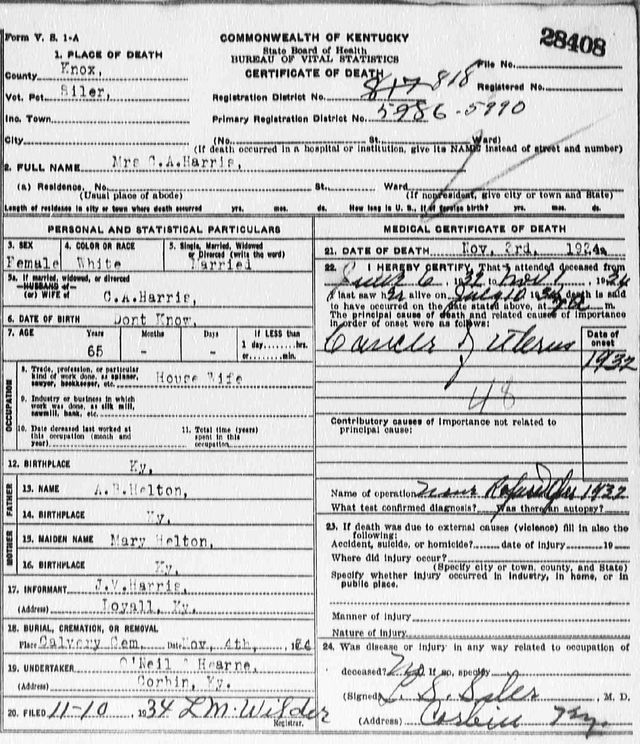 Form V. S. 1-A
COMMONWEALTH OF KENTUCKY
State Board of Health
BUREAU OF VITAL STATISTICS
CERTIFICATE OF DEATH
28408
File No.
Registered No.
1. PLACE OF DEATH
County Knox,
Vot. Pct. Siler,
Inc. Town
City
Registration District No. 817 818
Primary Registration District No. 5986-5990
(No. St. Ward)
(If death occurred in a hospital or institution, give its NAME instead of street and number)
2. FULL NAME Mrs C.A.Harris,
(a) Residence, No. St. Ward
(Usual place of abode) (If nonresident, give city or town and State)
Length of residence in city or town where death occurred yrs. mos. ds. How long in U. S., if of foreign birth? yrs. mos. ds.
PERSONAL AND STATISTICAL PARTICULARS
3. SEX
Female
4. COLOR OR RACE
White
5. Single, Married, Widowed
or Divorced (write the word)
Married
5a. If married, widowed, or divorced
HUSBAND of
(or) WIFE of C.A.Harris,
6. DATE OF BIRTH Dont Know,
7. AGE Years Months Days If LESS than
1 day, hrs.
or min.
65 - -
OCCUPATION
8. Trade, profession, or particular
kind of work done, as spinner,
sawyer, bookkeeper, etc. House Wife
9. Industry or business in which
work was done, as silk mill,
sawmill, bank, etc.
10. Date deceased last worked at
this occupation (month and
year)
11. Total time (years)
spent in this
occupation
12. BIRTHPLACE Ky.
FATHER
13. NAME A.B.Helton,
14. BIRTHPLACE Ky.
MOTHER
15. MAIDEN NAME Mary Helton,
16. BIRTHPLACE Ky.
17. INFORMANT J.V.Harris,
(Address) Loyall, Ky.
18. BURIAL, CREMATION, OR REMOVAL
Place Calvery Cem. Date Nov, 4th,
19. UNDERTAKER O'Neil Hearne,
(Address) Corbin, Ky.
20. FILED 11-10 1934 LM. Wilder
Registrar.
MEDICAL CERTIFICATE OF DEATH
21. DATE OF DEATH Nov, 3rd, 1934
22. I HEREBY CERTIFY, That I attended deceased from
July 6 Nov 1, 1934
I last saw her alive on July 10 1934 death is said
to have occurred on the date stated above, at m.
The principal cause of death and related causes of importance
in order of onset were as follows:
Date of
onset
Cancer of uterus 1932
48
Contributory causes of importance not related to
principal cause:
Name of operation 1932
What test confirmed diagnosis? Was there an autopsy?
23. If death was due to external causes (violence) fill in also the
following:
Accident, suicide, or homicide? date of injury 19
Where did injury occur?
(Specify city or town, county, and State)
Specify whether injury occurred in industry, in home, or in
public place.
Manner of injury
Nature of injury
24. Was disease or injury in any way related to occupation of
deceased? No If so, specify
(Signed) M. D.
(Address) Corbin Ky.